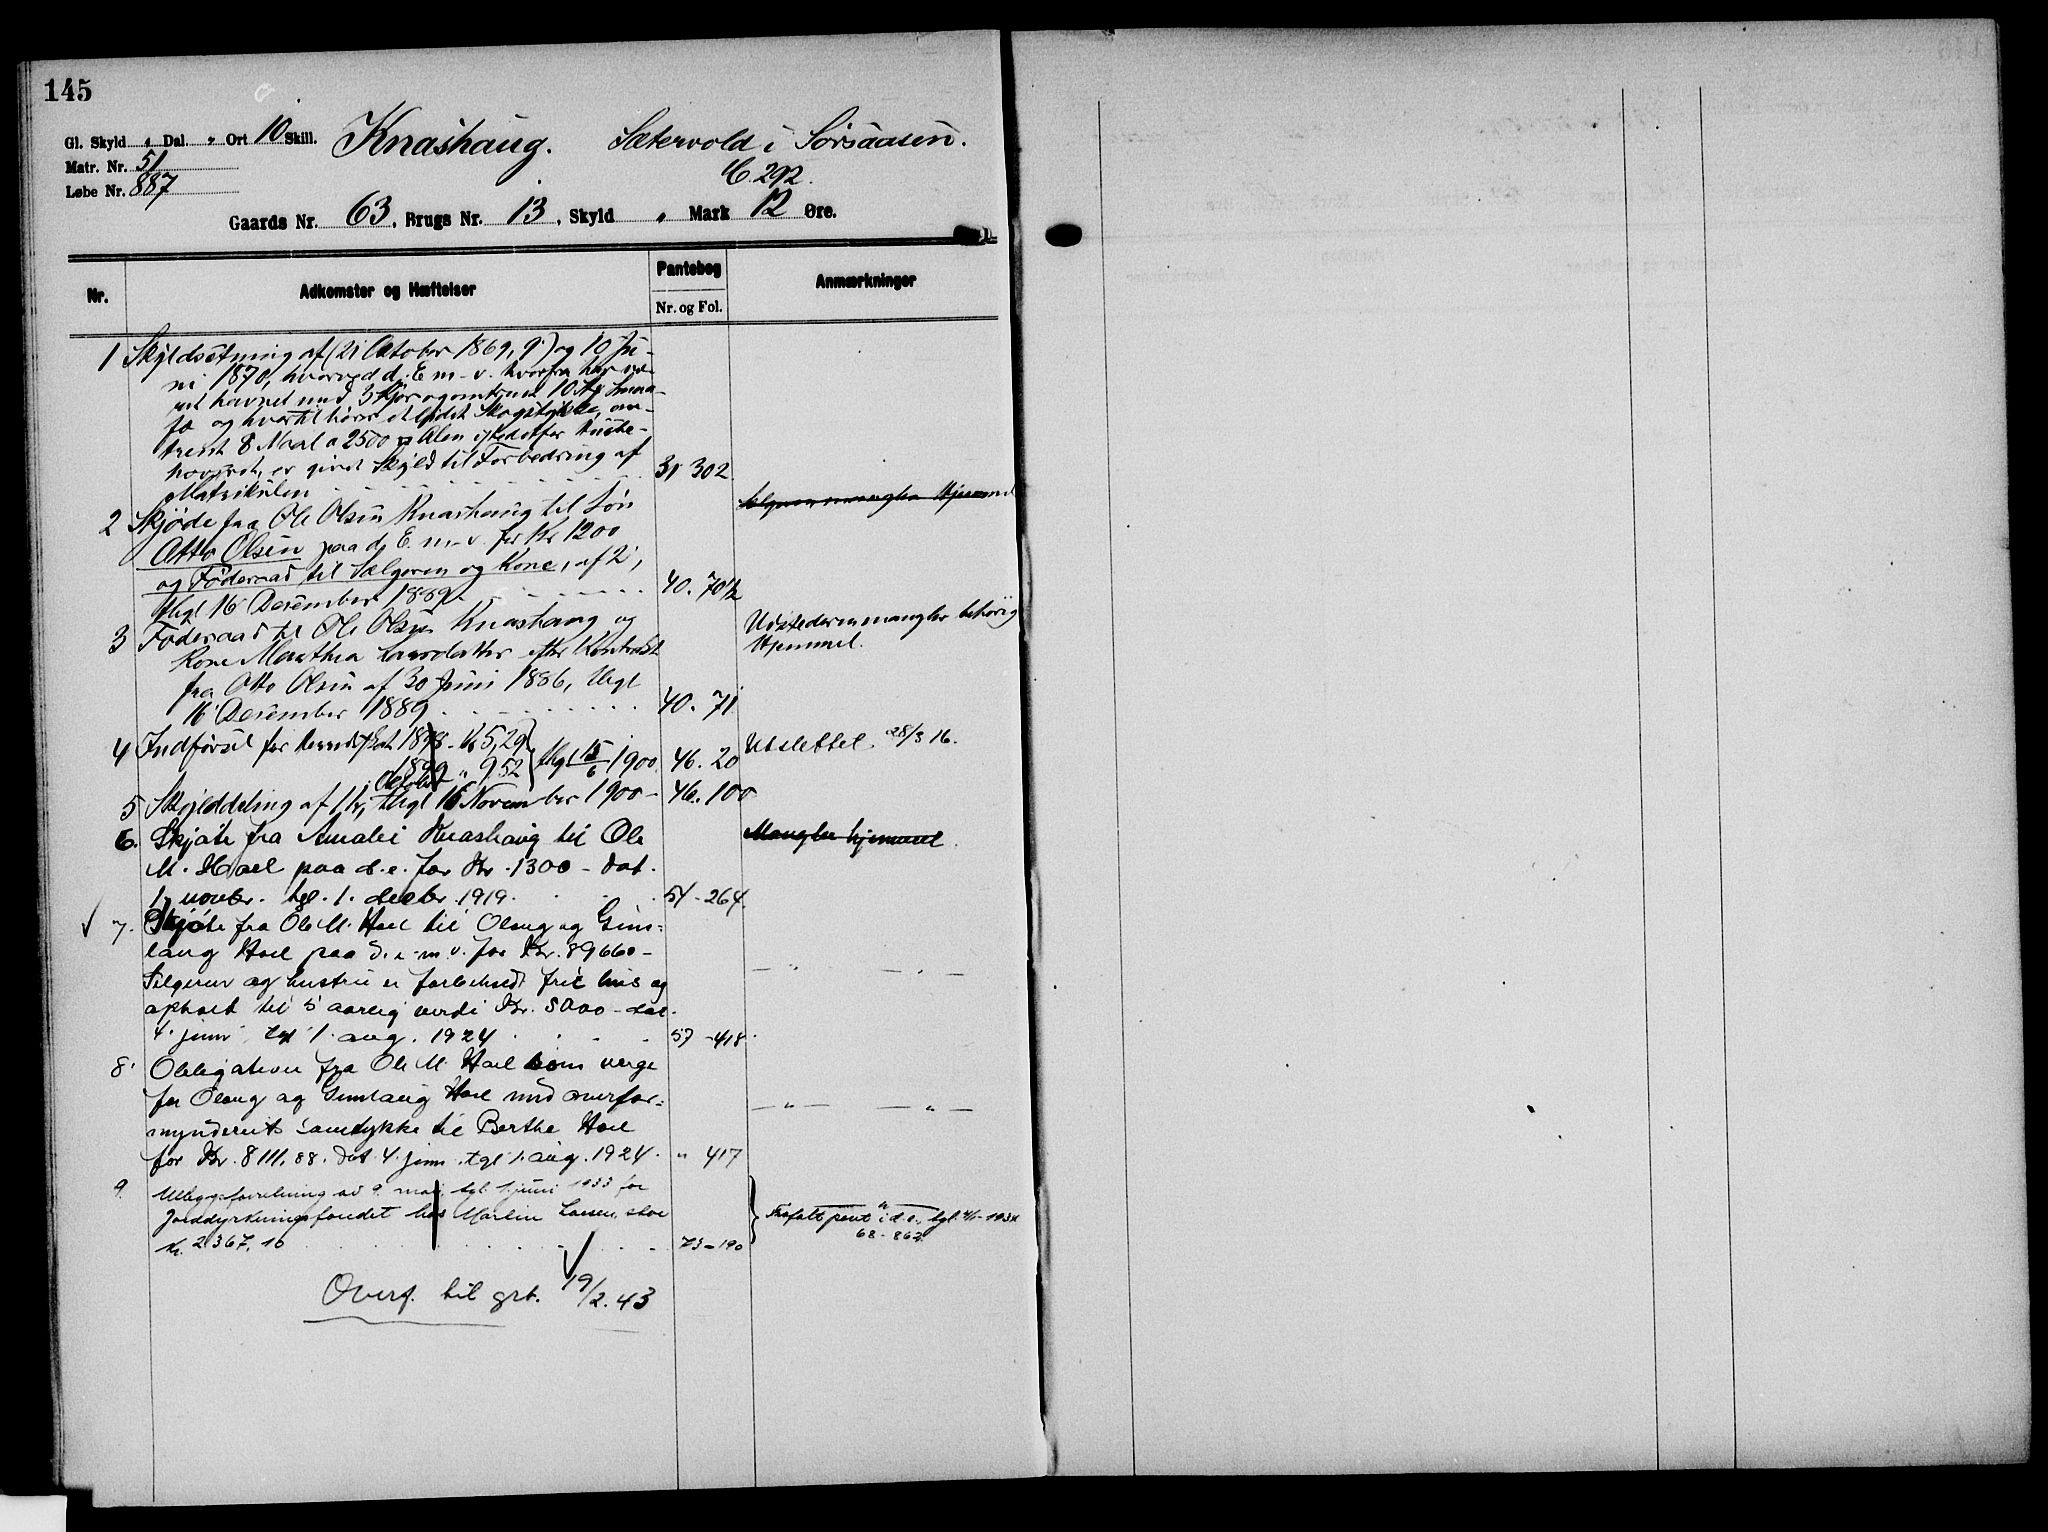 145
Gl. Skyld " Dal. " Ort 10 Skill. Knashaug. Sætervold i Sørsaasen.
Matr. Nr. 51
C. 292.
Løbe Nr. 887
Gaards Nr. 63, Brugs Nr. 13, Skyld " Mark 12 Øre.
Nr. Adkomster og Hæftelser Pantebog Nr. og Fol. Anmærkninger
1 Skyldsætning af (21 Oktober 1869, 9') og 10 Ju-
ni 1870, hvorved d. E. m- v. hvorfra har væ-
ret havnet med 3 Kjør og omtrent 10 Stk Smaa-
fæ og hvortil hører et lidet Skogstykke, om-
trent 8 Maal a 2500 Alen
er givet Skyld til Forbedring af
Matrikulen 31 302
2 Skjøde fra Ole Olsen Knashaug til Søn Selgeren mangler Hjemmel
Otto Olsen paa d. E. m- v. for Kr 1200
og Føderaad til Sælgeren og Kone, af 2',
thgl 16 December 1889. 40. 70½
3 Føderaad til Ole Olsen Knashaug og Udstederen mangler behørig
Kone Marthea Larsdatter efter Kontrakt Hjemmel.
fra Otto Olsen af 30 Juni 1886, thgl
16 December 1889 40. 71
4 Indførsel for 1898 - Kr 5,29 Utslettet 28/3 16.
1899 " 9.52 } thgl 15/6 1900 46. 20
Oktober
5 Skylddeling af 11, thgl 16 November 1900 - 46. 100
6. Skjøte fra Amalie Knashaug til Ole Mangler hjemmel.
M. Hoel paa d. e. for Kr. 1300 - dat.
1. novbr. tgl. 1. decbr. 1919. 54 - 264.
7. Skjøte fra Ole M. Hoel til Olaug og Gun-
laug Hoel paa d. e. m. v. for Kr. 89660 -
Selgeren og hustru er forbeholdt frit hus og — " — — " —
ophold til 5 aarlig verdi Kr. 5000 - dat.
4. juni tgl 1. aug. 1924 57 - 418.
8. Obligation fra Ole M. Hoel som verge
for Olaug og Gunlaug Hoel med overfor- — " — — " —
mynderiets samtykke til Berthe Hoel
for Kr. 8111,88. dat. 4. juni tgl 1. aug. 1924. " 417
9. Utleggsforretning av 9. mai, tgl. 1. juni 1933 for
Jorddyrkningsfondet hos Martin Larsen, stor
Kr. 2367,10 73 - 190
} Frafalt pant i d. e. tgl. 1934
68 - 862.
Overf. til grb. 19/2. 43